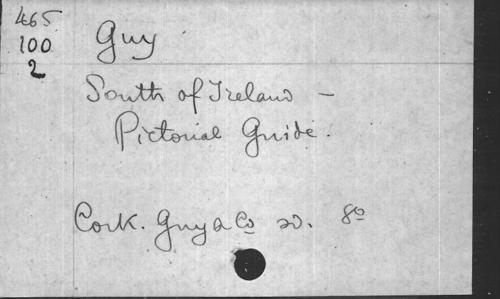 465
100
2
Guy
South of Ireland -
Pictorial Guide.
Cork. Guy & Co 8o